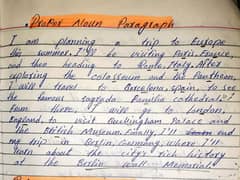 Proper Noun Paragraph
I am planning a trip to Europe
this summer. I'll be visiting Paris, France,
and then heading to Rome, Italy. After
exploring the colosseum and the Pantheon,
I will travel to Barcelona, Spain, to see
the famous Sagrada Familia cathedral?
From there, I will go to London,
England, to visit Buckingham Palace and
The British Museum. Finally, I'll end
my trip in Berlin, Germany, where I'll
learn about the city's rich history
at the Berlin Wall Memorial.